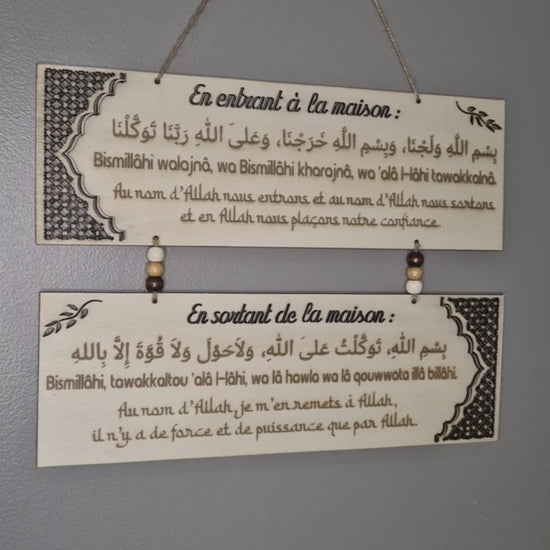 En entrant à la maison :
بِسْمِ اللَّهِ وَلَجْنَا، وَبِسْمِ اللَّهِ خَرَجْنَا، وَعَلىَ اللَّهِ رَبِّنَا تَوَكَّلْنَا
Bismillâhi walajnâ, wa Bismillâhi kharajnâ, wa 'alâ l-lâhi tawakkalnâ.
Au nom d'Allah nous entrons et au nom d'Allah nous sortons
et en Allah nous plaçons notre confiance.
En sortant de la maison :
بِسْمِ اللهِ، تَوَكَّلْتُ عَلىَ اللهِ، وَلاَحَوْلَ وَلاَ قُوَّةَ إِلاَّ بِاللهِ
Bismillâhi, tawakkaltou 'alâ l-lâhi, wa lâ hawla wa lâ qouwwata illâ billâhi.
Au nom d'Allah, je m'en remets à Allah,
il n'y a de force et de puissance que par Allah.